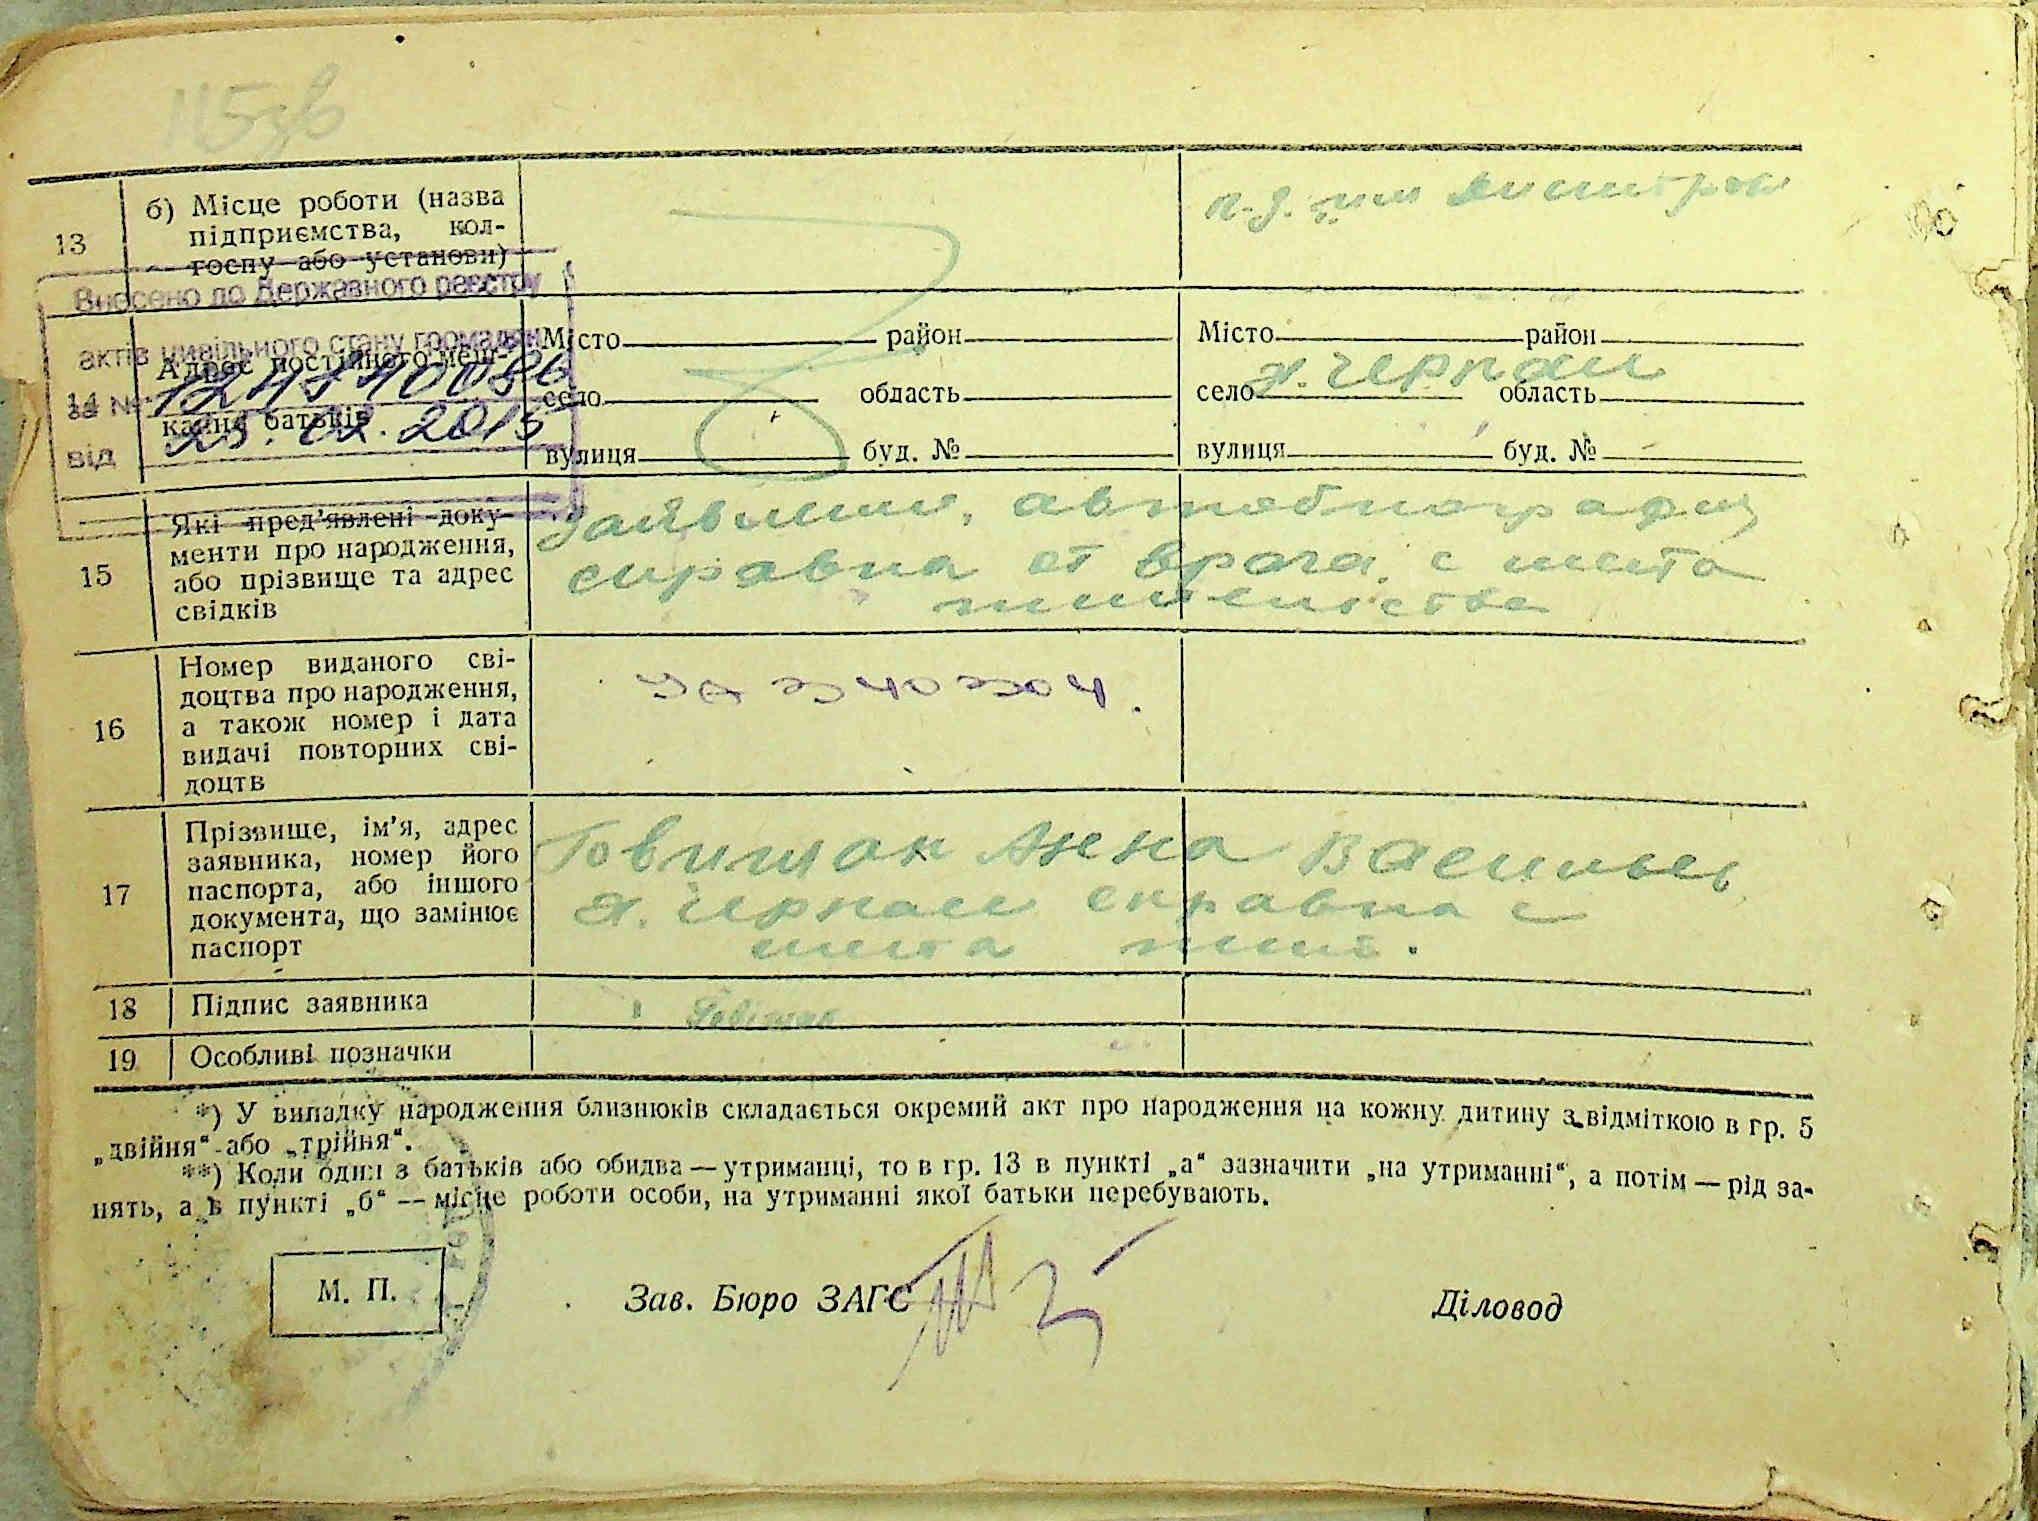 115зв
13
б) Місце роботи (назва
підприємства, кол-
госпу або установи)
к-з. им Димитрова
Внесено до Державного реєстру
актів цивільного стану громадян
за №
від 25.02.2015
14
Адрес постійного меш-
кання батьків
Місто район
село область
вулиця буд. №
Місто район
село х. Черпак область
вулиця буд. №
15
Які пред’явлені доку-
менти про народження,
або прізвище та адрес
свідків
автобиография
справка от врача, с места
жительства
16
Номер виданого сві-
доцтва про народження,
а також номер і дата
видачі повторних сві-
доцтв
17
Прізвище, ім’я, адрес
заявника, номер його
паспорта, або іншого
документа, що замінює
паспорт
Анна Васильев
справка с
места жит.
18
Підпис заявника
19
Особливі позначки
*) У випадку народження близнюків складається окремий акт про народження на кожну дитину з відміткою в гр. 5
„двійня“ або „трійня“.
**) Коли один з батьків або обидва — утриманці, то в гр. 13 в пункті „а“ зазначити „на утриманні“, а потім — рід за-
нять, а в пункті „б“ — місце роботи особи, на утриманні якої батьки перебувають.
М. П.
Зав. Бюро ЗАГС
Діловод